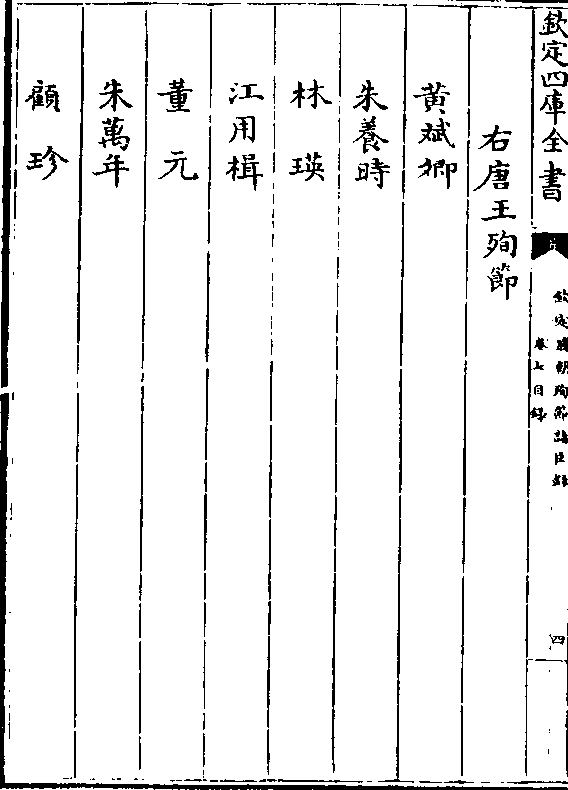 欽定四庫全書
欽定勝朝殉節諸臣錄
卷七目錄
四
右唐王殉節
黃斌卿
朱養時
林瑛
江用楫
董元
朱萬年
顧珍